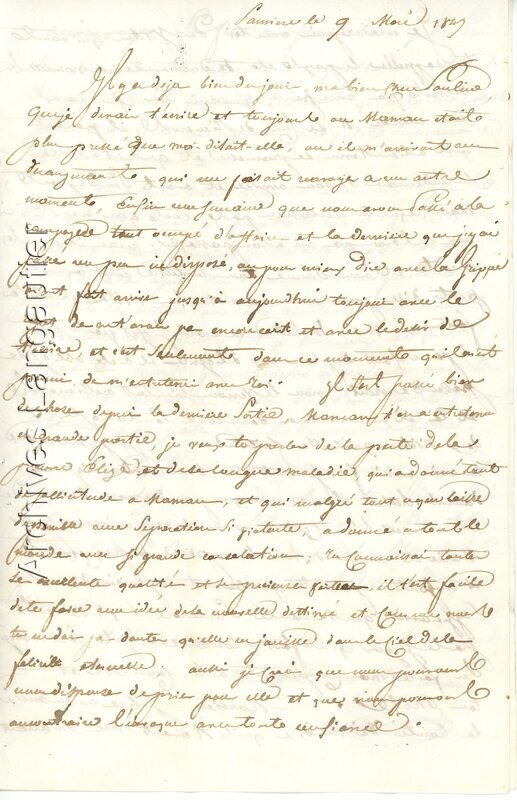 le 9 Mai 18
Il y a deja bien du jour, ma bien chere Pauline,
que je devrait t'ecrire et toujours ou Maman etait
plus pressé que moi disait-elle, ou il m'arrivait un
derangement qui me faisait renvoye a un autre
moment, Enfin une semaine que nous avons passé a la
campagne tout occupé d'affaire et la derniere que j'y ai
passé un peu indisposé, ou pour mieux dire avec la grippe
m'ont fait arrive jusqu'a aujourdhui toujour avec le
de ne t'avoir pas encore ecrit et avec le desir de
et c'est seulement dans ce moment qu'il m'est
permi de m'entretenir avec toi. Il s'est passé bien
de chose depuis ta derniere Sortie, Maman t'en a entretenu
en grande partie, je veux te parler de la perte de la
pauvre Eliza et de sa longue maladie, qui a donné tant
de sollicitude a Maman, et qui malgré tout
une Separation Si a donné a tout le
monde une si grande consolation, tu connaissai toute
Se excellente qualité et Se precieuse vertus, il t'est facile
de te faire une idée de sa nouvelle destinée et
tu ne doi pas douter qu'elle ne jouisse dans le Ciel de la
felicité eternelle. aussi je croi que nous pourrions
nous dispenser de prier pour elle et que nous pourrions
au contraire l'invoquer avec toute confiance.
Archives Langautier